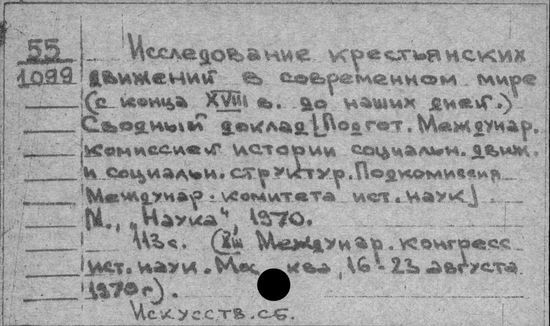 55
1099
Исследование крестьянских
движений в современном мире
(с конца XVIII в. до наших дней.)
Сводный доклад [Подгот. Междунар.
комиссией истории социальн. движ.
и социальн. структур. Подкомиссия
Междунар. комитета ист. наук].
М., "Наука", 1970.
113 с. (XIII Междунар. конгресс
ист. наук. Москва, 16-23 августа
1970 г.).
Искусств. сб.